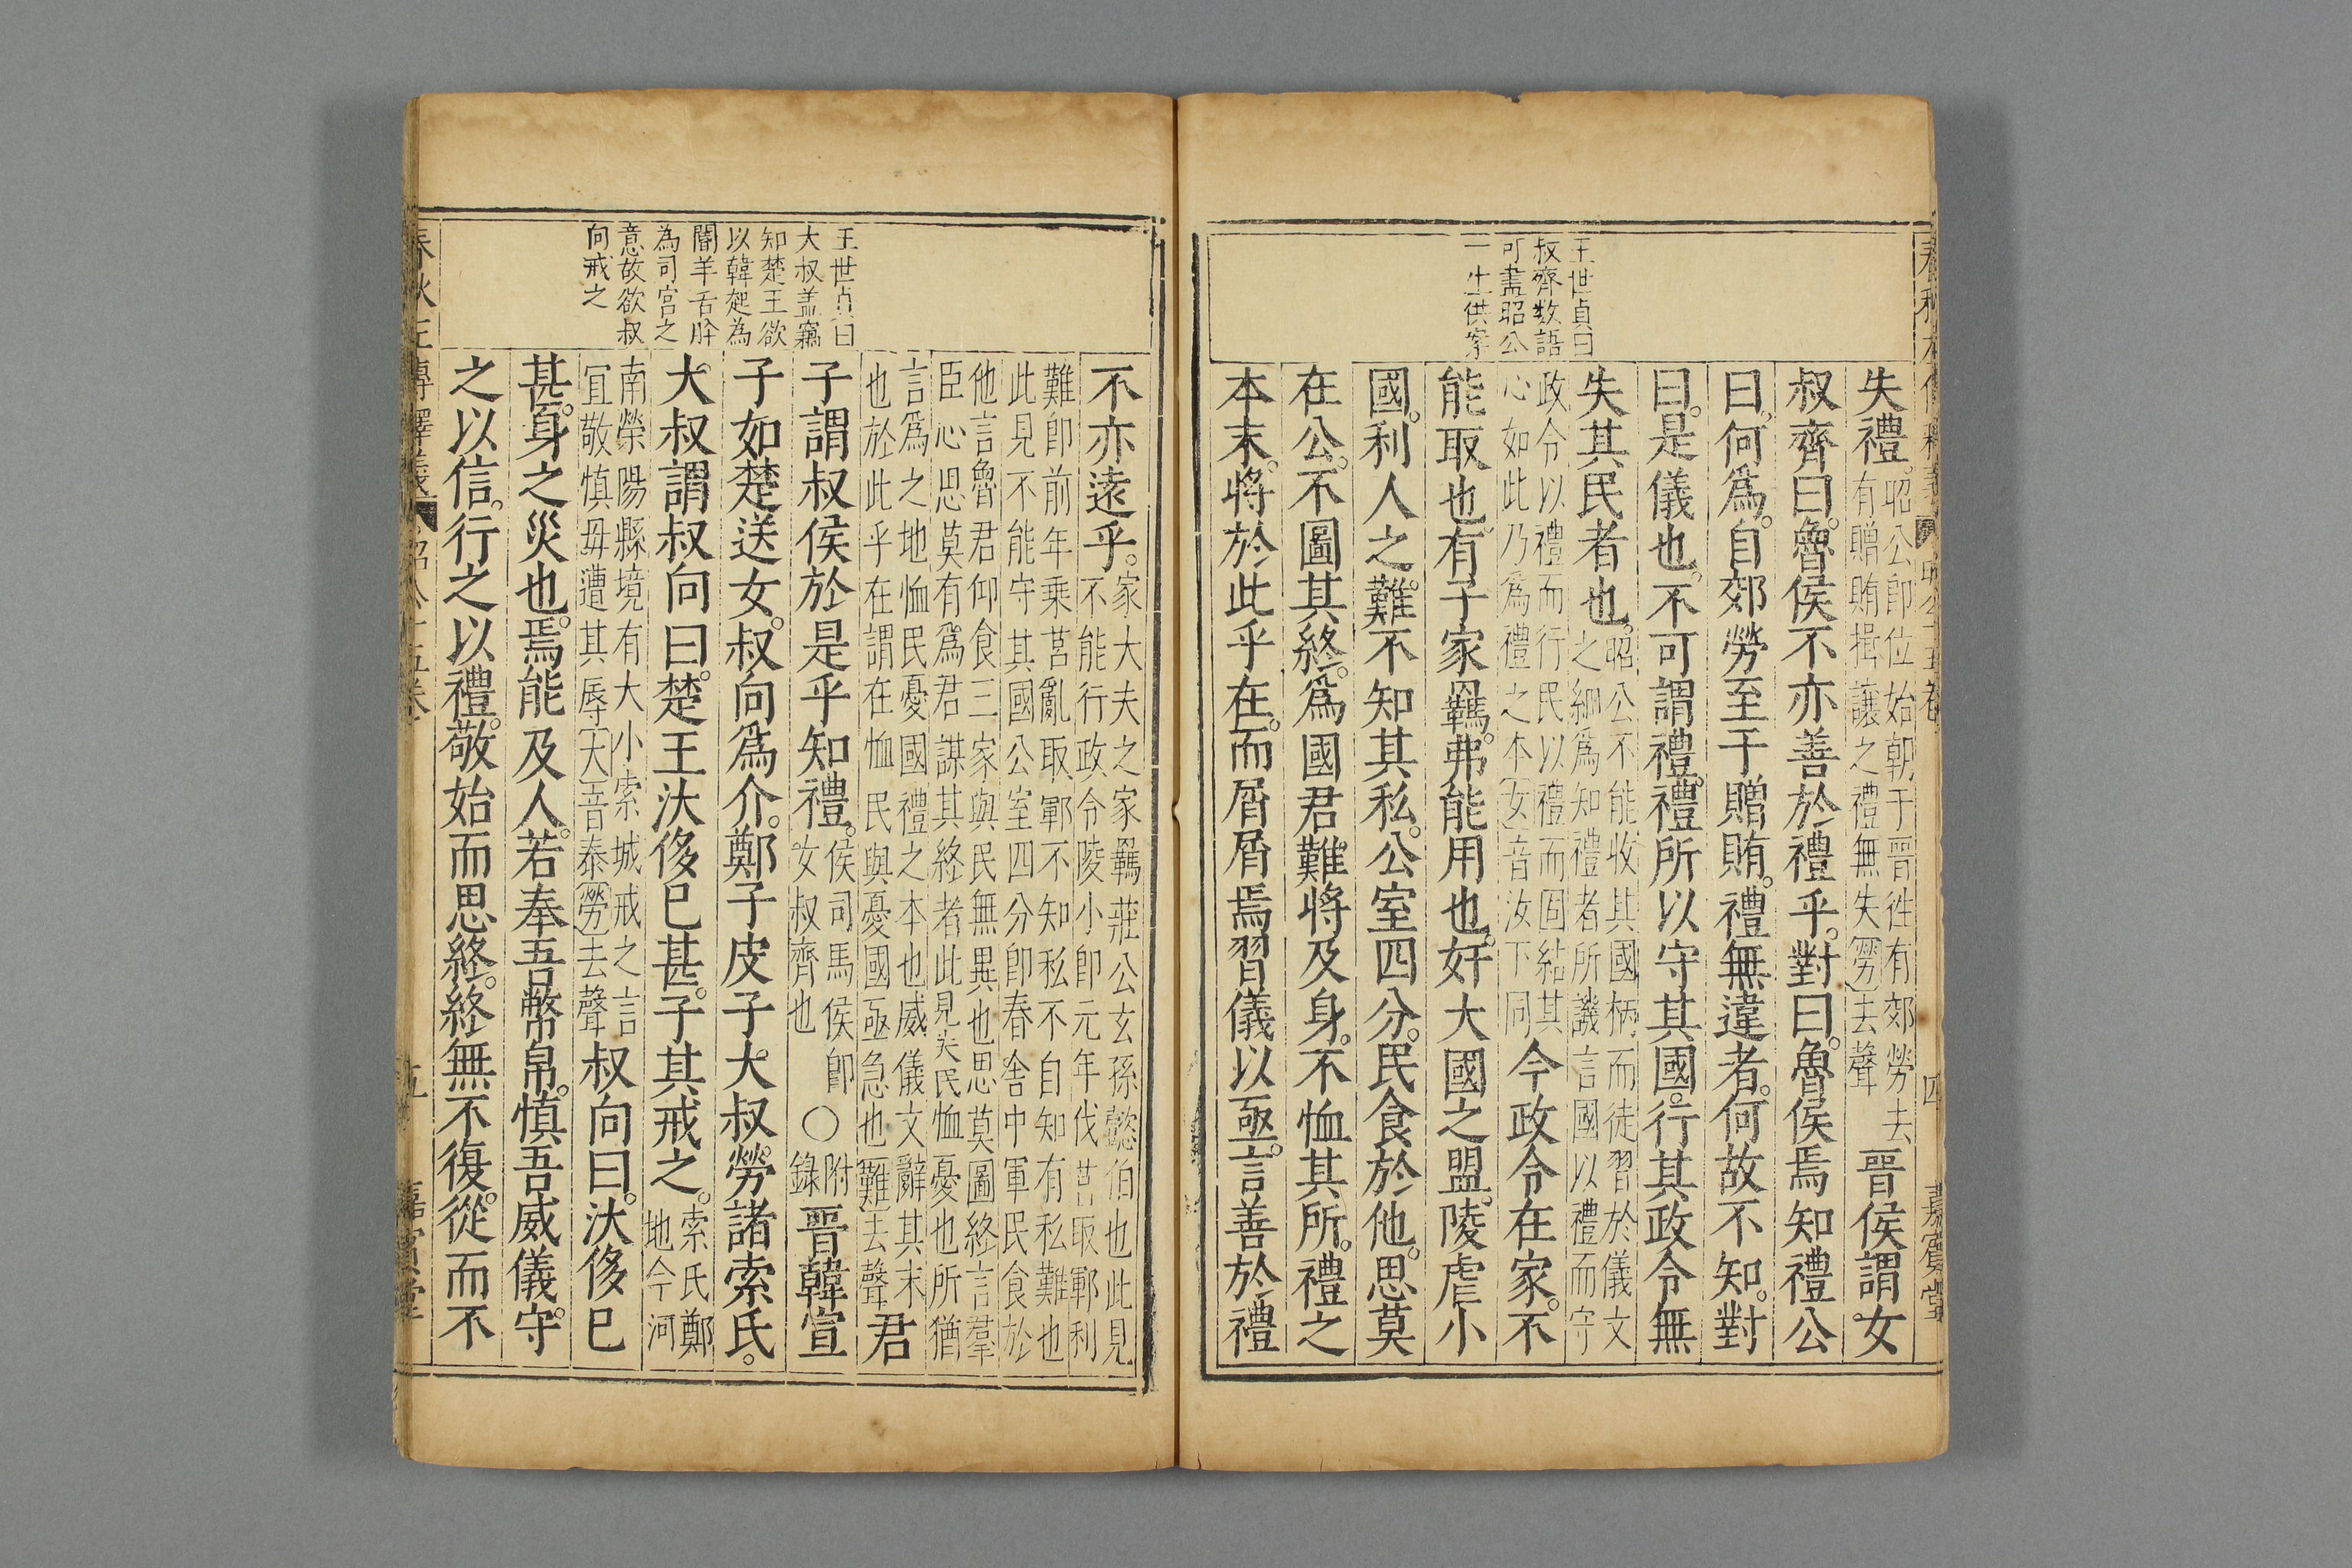 王世貞曰
叔齊数語
可盡昭公
一生供案
失禮。昭公即位始朝于晋徃有郊勞去
有贈賄揖讓之禮無失勞去聲
晋侯謂女
叔齊曰。魯侯不亦善於禮乎。對曰。魯侯焉知禮公
曰。何爲。自郊勞至于贈賄。禮無違者。何故不知。對
曰。是儀也。不可謂禮。禮所以守其國。行其政令無
失其民者也。昭公不能收其國柄而徒習於儀文
之細爲知禮者所譏言國以禮而守
政令以禮而行民以禮而固結其
心如此乃爲禮之本女音汝下同
今政令在家。不
能取也。有子家羈。弗能用也。奸大國之盟。陵虐小
國。利人之難。不知其私。公室四分。民食於他。思莫
在公。不圖其終。爲國君難將及身。不恤其所。禮之
本末。將於此乎在。而屑屑焉習儀以亟。言善於禮
嘉賓堂
四
王世貞曰
大叔盖竊
知楚王欲
以韓起為
閽羊舌肸
為司宮之
意故欲叔
向戒之
不亦遠乎。家大夫之家羈莊公玄孫懿伯也此見
不能行政令陵小即元年伐莒取鄆利
難即前年乘莒亂取鄆不知私不自知有私難也
此見不能守其國公室四分即春舎中軍民食於
他言魯君仰食三家與民無異也思莫圖終言羣
臣心思莫有爲君謀其終者此見失民恤憂也所猶
言爲之地恤民憂國禮之本也威儀文辭其末
也於此乎在謂在恤民與憂國亟急也難去聲
君
子謂叔侯於是乎知禮。侯司馬侯即
女叔齊也
〇附
錄
晋韓宣
子如楚送女。叔向爲介。鄭子皮子大叔勞諸索氏。
大叔謂叔向曰。楚王汏侈已甚。子其戒之。索氏鄭
地今河
南滎陽縣境有大小索城戒之言
宜敬慎毋遭其辱大音泰勞去聲
叔向曰。汏侈已
甚。身之災也。焉能及人。若奉吾幣帛。慎吾威儀。守
之以信。行之以禮。敬始而思終。終無不復。從而不
春秋左傳釋義 昭公十五卷
五
嘉賓堂